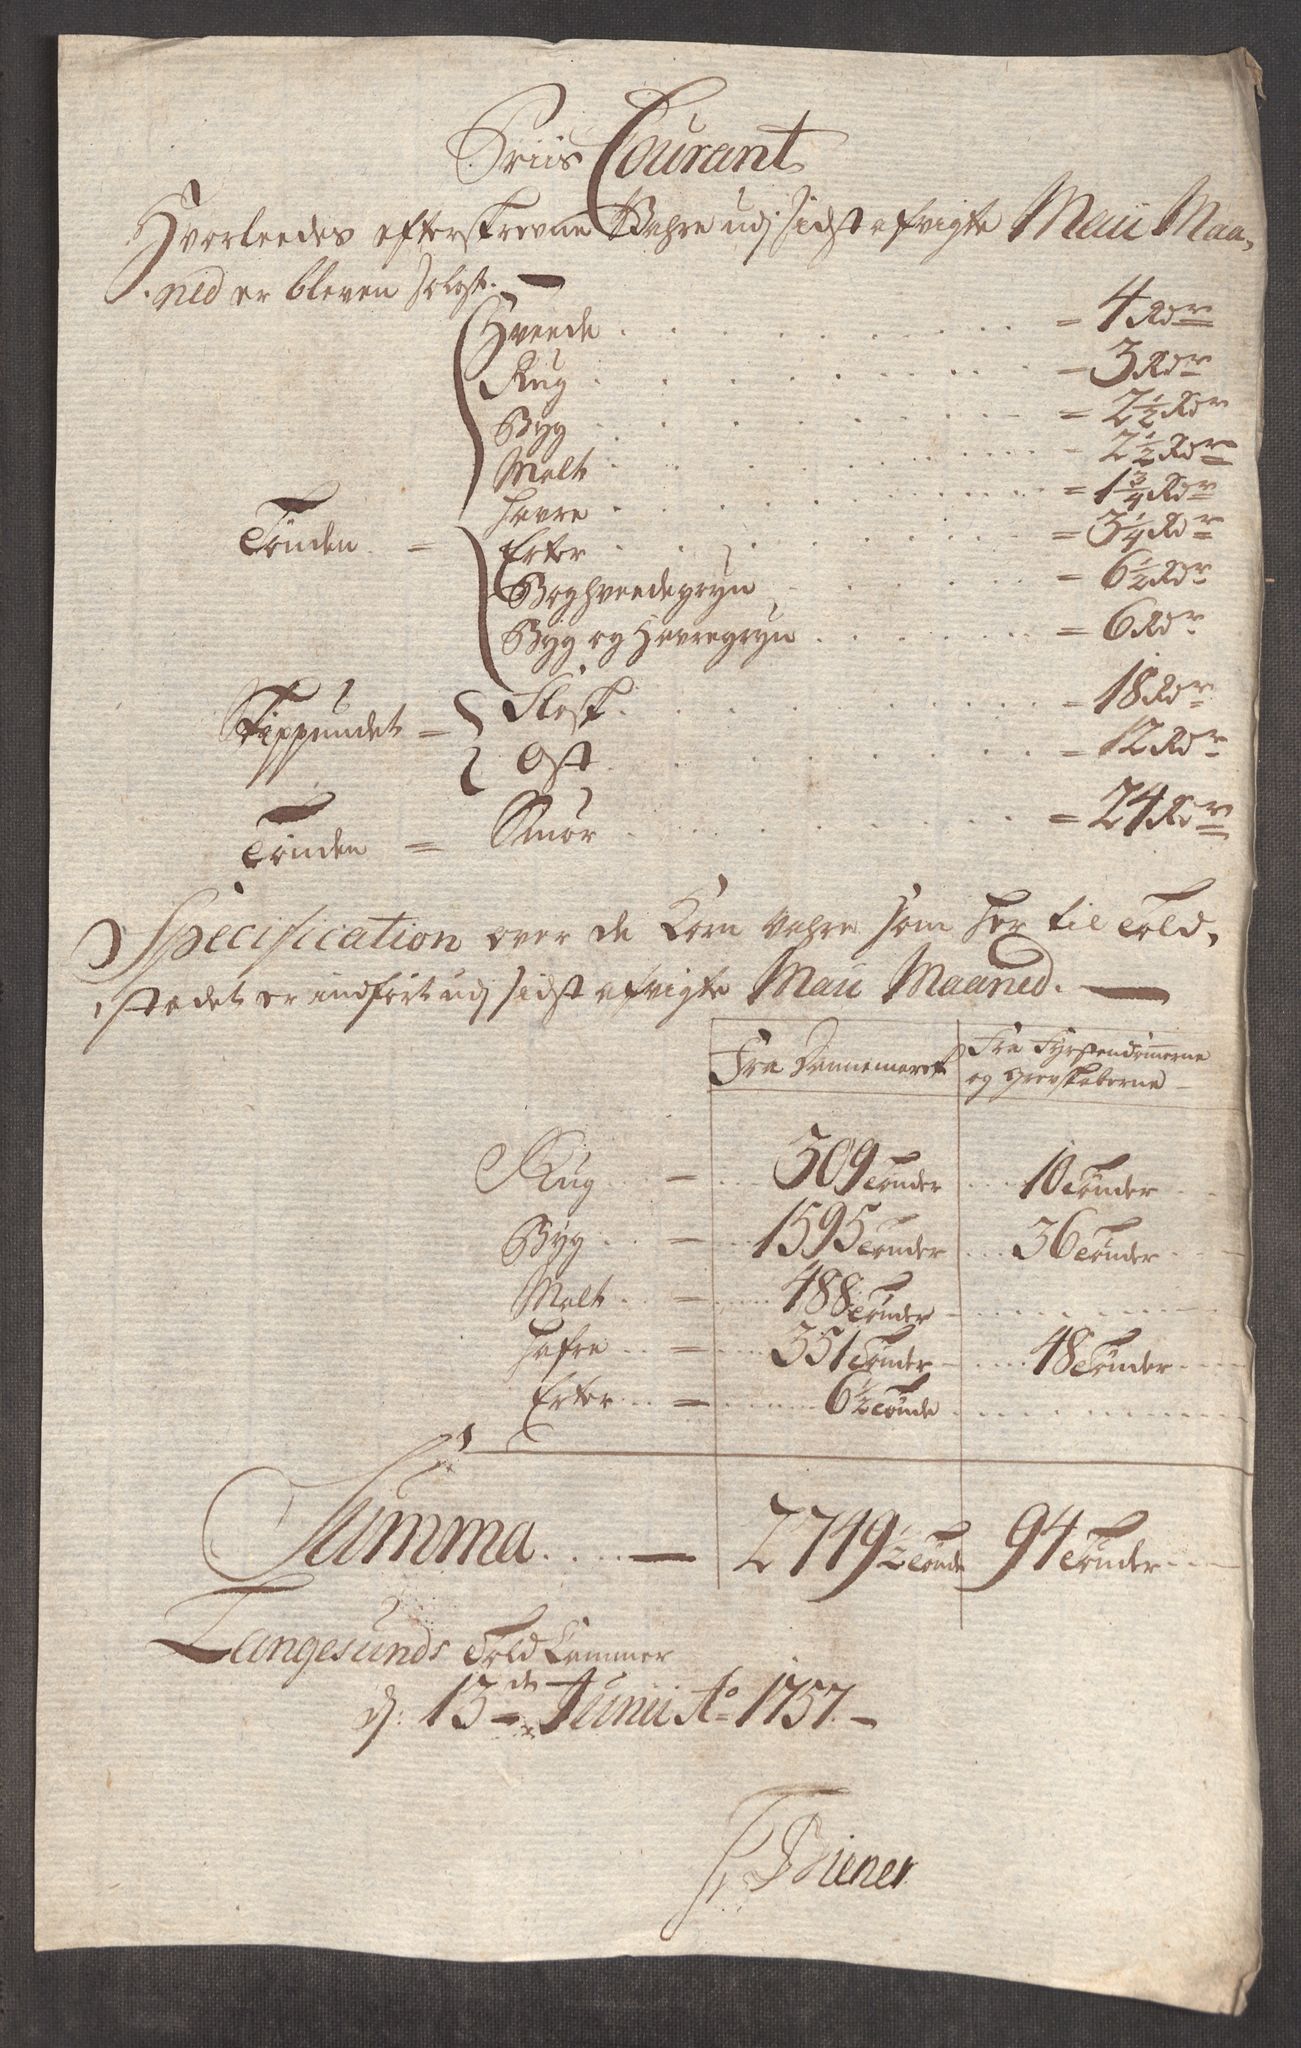 Priis Courant
Hvorleedes efterskrevne Vahre udj sidst afvigte Maii Maa-
ned er bleven solgt.
Hveede = 4 Rdr
Rug = 3 Rdr
Byg = 2 1/2 Rdr
Malt = 2 1/2 Rdr
Havre = 1 3/4 Rdr
Tönden = Erter = 3 1/4 Rdr
Boghveedegryn = 6 1/2 Rdr
Byg og Havregryn = 6 Rdr
Skippundet = Flesk = 18 Rdr
Ost = 12 Rdr
Tönden = Smör = 24 Rdr
Specification over de Korn Vahre som her til Told-
stædet er indfört udj sidst afvigte Maii Maaned.
Fra Dannemark Fra Fyrstendömerne
og Grevskaberne
Rug = 309 Tönder 10 Tönder
Byg = 1595 Tönder 36 Tönder
Malt = 488 Tönder
Hafre = 351 Tönder 48 Tönder
Erter = 6 1/2 Tönde
Summa 2749 1/2 Tönde 94 Tönder
Langesunds Told Cammer
d: 13de Junii Ao 1757.
Biener